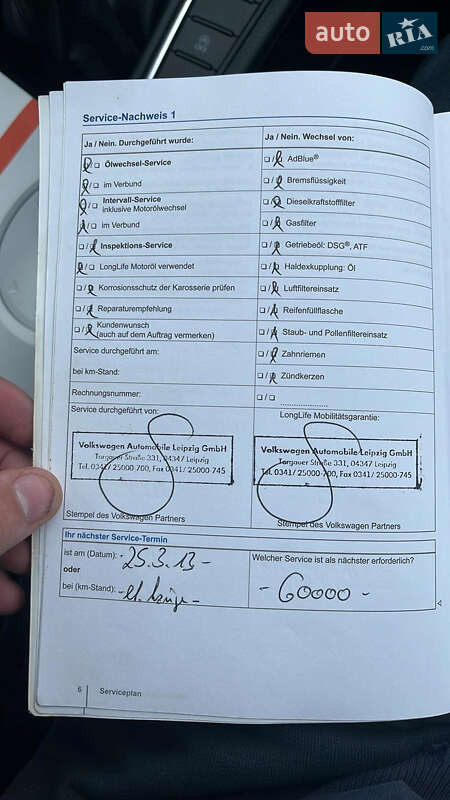 auto RIA.com
Service-Nachweis 1
Ja / Nein. Durchgeführt wurde:
Ja / Nein. Wechsel von:
Ölwechsel-Service
im Verbund
Intervall-Service
inklusive Motorölwechsel
im Verbund
Inspektions-Service
LongLife Motoröl verwendet
Korrosionsschutz der Karosserie prüfen
Reparaturempfehlung
Kundenwunsch
(auch auf dem Auftrag vermerken)
Service durchgeführt am:
bei km-Stand:
Rechnungsnummer:
AdBlue®
Bremsflüssigkeit
Dieselkraftstofffilter
Gasfilter
Getriebeöl: DSG®, ATF
Haldexkupplung: Öl
Luftfiltereinsatz
Reifenfüllflasche
Staub- und Pollenfiltereinsatz
Zahnriemen
Zündkerzen
Service durchgeführt von:
Volkswagen Automobile Leipzig GmbH
Torgauer Straße 331, 04347 Leipzig
Tel. 0341/ 25000-700, Fax 0341/ 25000-745
Stempel des Volkswagen Partners
LongLife Mobilitätsgarantie:
Volkswagen Automobile Leipzig GmbH
Torgauer Straße 331, 04347 Leipzig
Tel. 0341/ 25000-700, Fax 0341/ 25000-745
Stempel des Volkswagen Partners
Ihr nächster Service-Termin
ist am (Datum): - 25.3.13 -
oder
bei (km-Stand):
Welcher Service ist als nächster erforderlich?
- 60000 -
6 Serviceplan